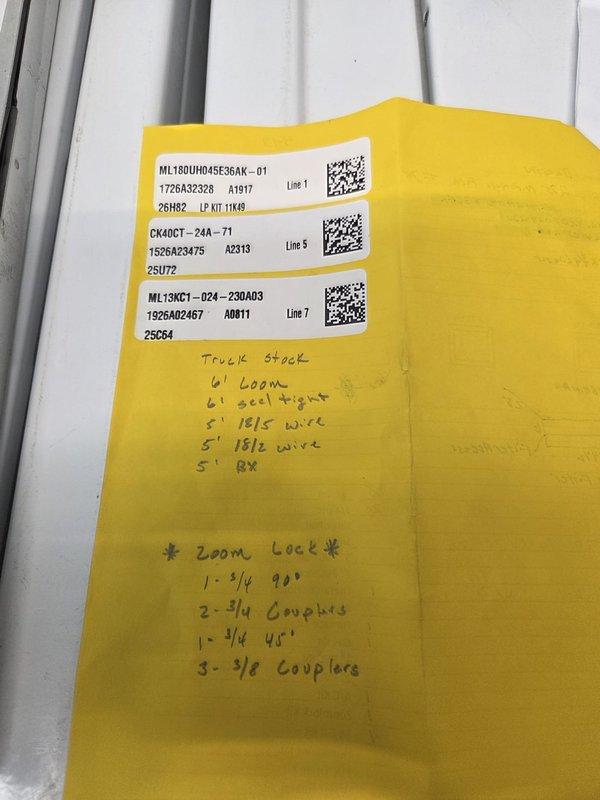 ML180UH045E36AK-01
1726A32328 A1917 Line 1
26H82 LP KIT 11K49
CK40CT-24A-71
1526A23475 A2313 Line 5
25U72
ML13KC1-024-230A03
1926A02467 A0811 Line 7
25C64
Truck Stock
6' Loom
6' seel tight
5' 18/5 wire
5' 18/2 wire
5' BX
* Zoom Lock *
1- 3/4 90°
2- 3/4 Couplers
1- 3/4 45°
3- 3/8 Couplers